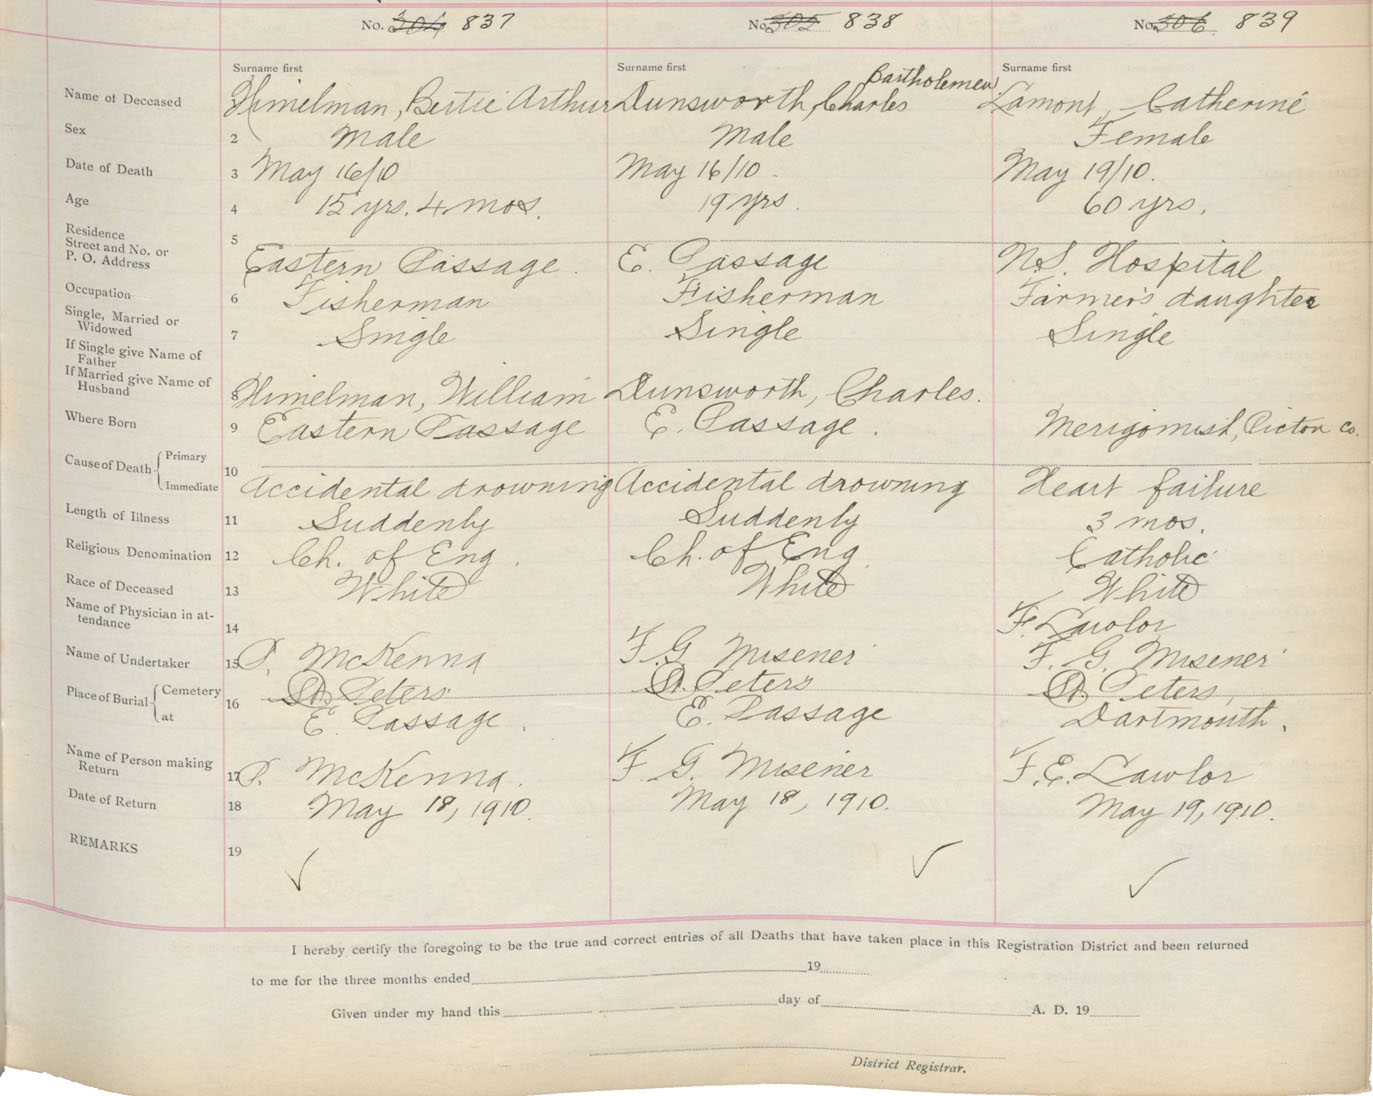 No. 304 837 No. 305 838 No. 306 839
Surname first Surname first Surname first
Name of Deceased Himelman, Bertie Arthur Dunsworth, Charles Bartholemew Lamont, Catherine
Sex 2 Male Male Female
Date of Death 3 May 16/10 May 16/10. May 19/10.
Age 4 15 yrs. 4 mos. 19 yrs. 60 yrs.
Residence 5
Street and No. or
P. O. Address Eastern Passage. E. Passage N.S. Hospital
Occupation 6 Fisherman Fisherman Farmer's daughter
Single, Married or
Widowed 7 Single Single Single
If Single give Name of
Father
If Married give Name of
Husband 8 Himelman, William Dunsworth, Charles.
Where Born 9 Eastern Passage E. Passage. Merigomish, Pictou Co.
Cause of Death Primary
Immediate 10 Accidental drowning Accidental drowning Heart failure
Length of Illness 11 Suddenly Suddenly 3 mos.
Religious Denomination 12 Ch. of Eng. Ch. of Eng. Catholic
Race of Deceased 13 White White White
Name of Physician in at-
tendance 14 F. Lawlor
Name of Undertaker 15 P. McKenna F. G. Misener F. G. Misener
Place of Burial Cemetery 16 St. Peters St. Peters St. Peters,
at E. Passage. E. Passage Dartmouth.
Name of Person making
Return 17 P. McKenna. F. G. Misener F. E. Lawlor
Date of Return 18 May 18, 1910. May 18, 1910. May 19, 1910.
REMARKS 19
I hereby certify the foregoing to be the true and correct entries of all Deaths that have taken place in this Registration District and been returned
to me for the three months ended 19
Given under my hand this day of A. D. 19
District Registrar.